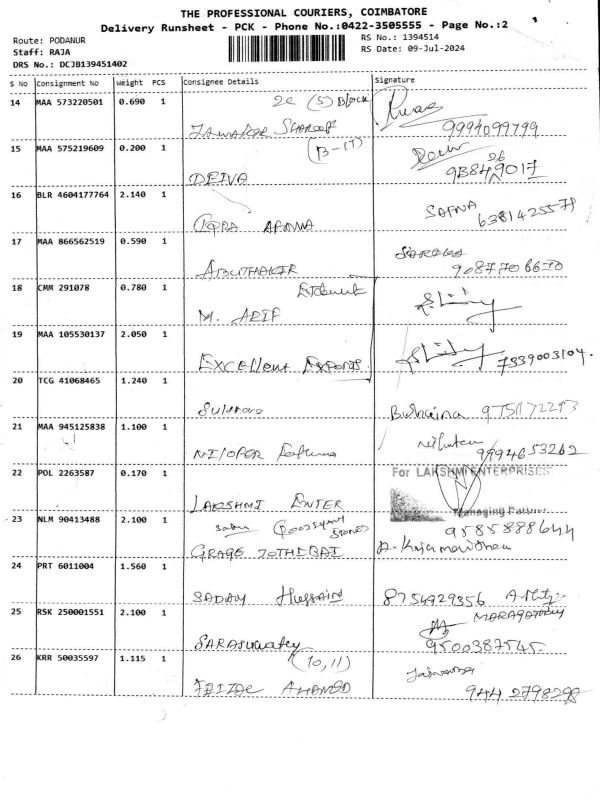 THE PROFESSIONAL COURIERS, COIMBATORE
Delivery Runsheet - PCK - Phone No.:0422-3505555 - Page No.:2
Route: PODANUR
Staff: RAJA
DRS No.: DCJB139451402
RS No.: 1394514
RS Date: 09-Jul-2024
S No Consignment No Weight PCS Consignee Details Signature
14 MAA 573220501 0.690 1
2C (5) Block
9994099799
15 MAA 575219609 0.200 1
(B-17)
DEIVA
16 BLR 4604177764 2.140 1
SAFNA
6381425579
17 MAA 866562519 0.590 1
ABUTHAKIR
9087706670
18 CMM 291078 0.780 1
M. ARIF
19 MAA 105530137 2.050 1
EXCELLent EXPORTS
7339003104.
20 TCG 41068465 1.240 1
21 MAA 945125838 1.100 1
9994653262
22 POL 2263587 0.170 1
For LAKSHMI ENTERPRISES
LAKSHMI ENTER
Managing Partner
23 NLM 90413488 2.100 1
9585888644
24 PRT 6011004 1.560 1
SADAM HUSSAIN
8754929356
25 RSK 250001551 2.100 1
9500387545
26 KRR 50035597 1.115 1
(10,11)
FAIZAL AHAMED
944 2798298